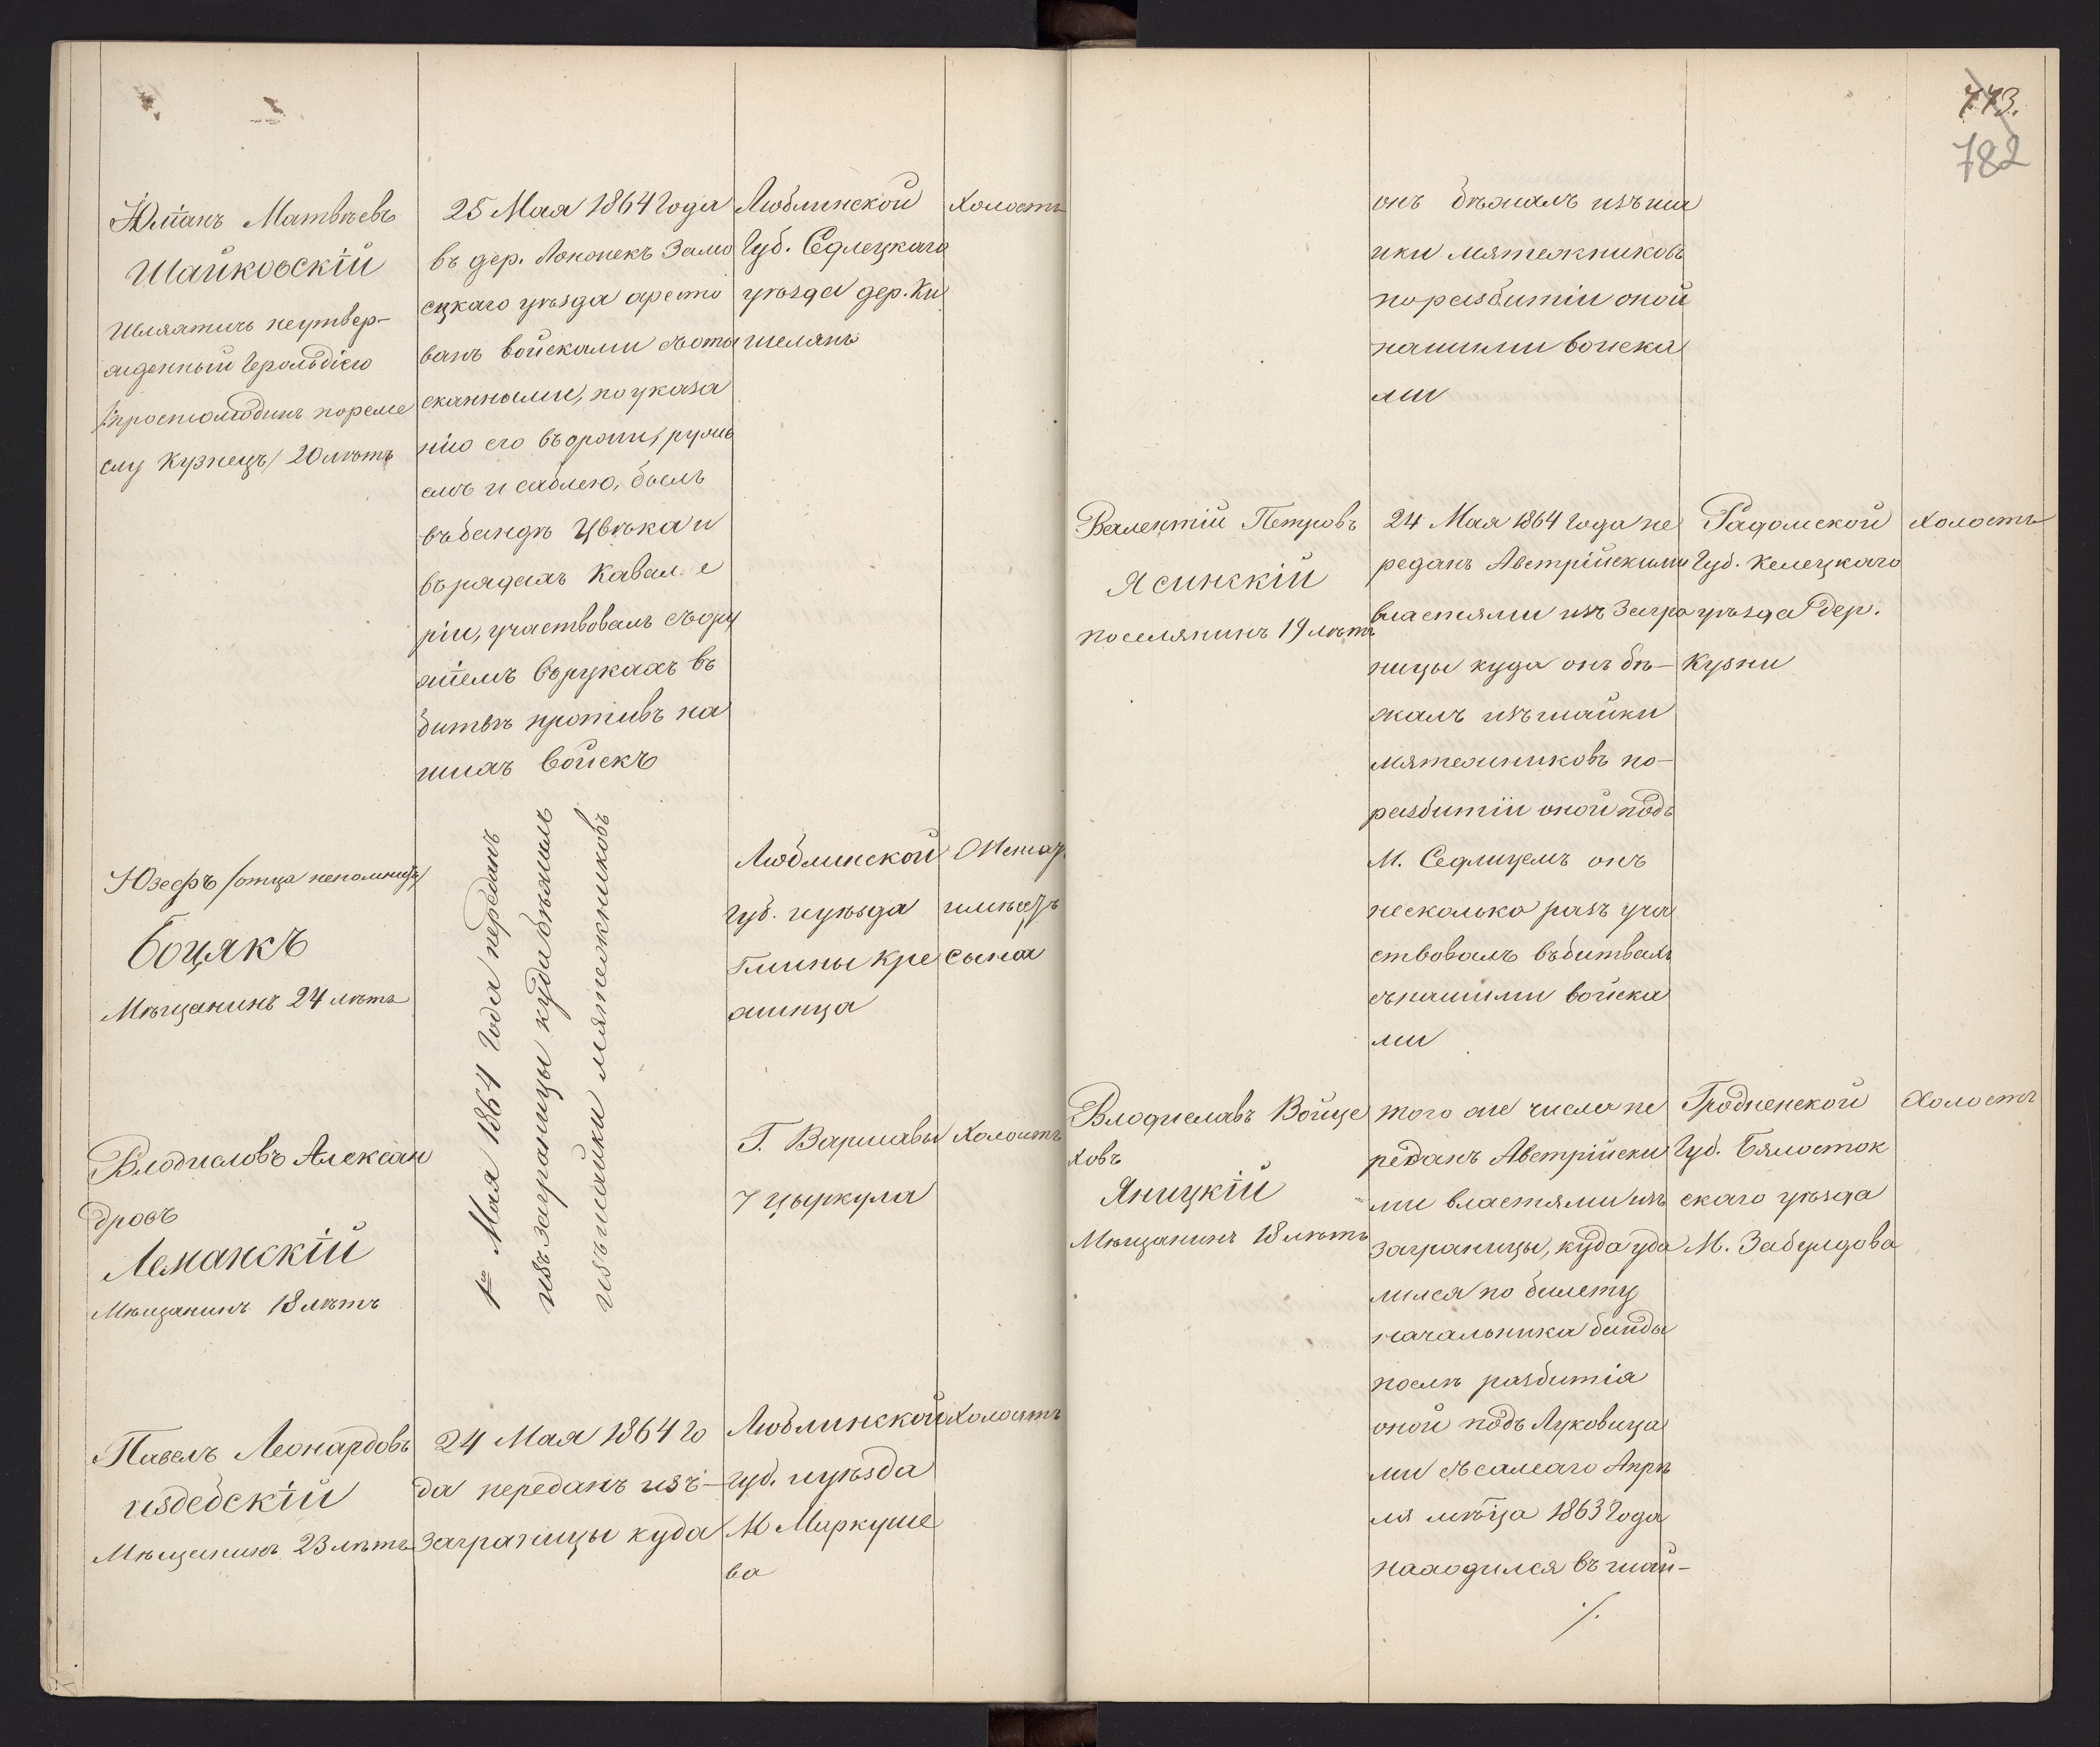 773.
782
Юліанъ Матвѣевъ
Шайковскій
Шляхтичь неутвер-
жденный Герольдіею
/простолюдинъ по реме
слу Кузнецъ/ 20 лѣтъ
25 Мая 1864 года
въ дер. Замо
сцкаго уѣзда аресто
ванъ войсками съ оты
сканными, по указа
нію его въ ружь
емъ и саблею, былъ
въ бандѣ Цвѣка и
въ рядахъ Кавале
ріи, участвовалъ съ ору
жіемъ въ рукахъ въ
битвѣ противъ на
шихъ войскъ
Люблинской
Губ. Седлецкаго
уѣзда дер. Ки
шелянъ
Холостъ
Юзефъ /отца непомнитъ/
Боцякъ
Мѣщанинъ 24 лѣтъ
1го Мая 1864 года переданъ
изъ заграницы куда бѣжалъ
изъ шайки мятежниковъ
Люблинской
Губ. и уѣзда
Глины Кре
жница
Женатъ
имѣетъ
сына
Владиславъ Алексан
дровъ
Леманскій
Мѣщанинъ 18 лѣтъ
Г. Варшавы
7 цыркула
Холостъ
Павелъ Леонардовъ
Издебскій
Мѣщанинъ 23 лѣтъ
24 Мая 1864 го
да переданъ изъ-
заграницы куда
Люблинской
Губ. и уѣзда
М Маркуше
ва
Холостъ
онъ бѣжалъ изъ ша
йки мятежниковъ
по разбитіи оной
нашими войска
ми
Валентій Петровъ
Ясинскій
поселянинъ 19 лѣтъ
24 Мая 1864 года пе
реданъ Австрійскими
властями изъ Загра
ницы куда онъ бѣ-
жалъ изъ шайки
мятежниковъ по-
разбитіи оной подъ
М. Седлицемъ онъ
несколько разъ уча
ствовалъ въ битвахъ
съ нашими войска
ми
Радомской
Губ. Келецкаго
уѣзда дер.
Кузни
Холостъ
Владиславъ Войце
ховъ
Яницкій
Мѣщанинъ 18 лѣтъ
того же числа пе
реданъ Австрійски
ми властями изъ
заграницы, куда уда
лился по билету
начальника банды
послѣ разбитія
оной подъ Луковица
ми съ самаго Апрѣ
ля мѣсца 1863 года
находился въ шай-
./.
Гродненской
Губ. Бялосток
скаго уѣзда
М. Забулдова
Холостъ